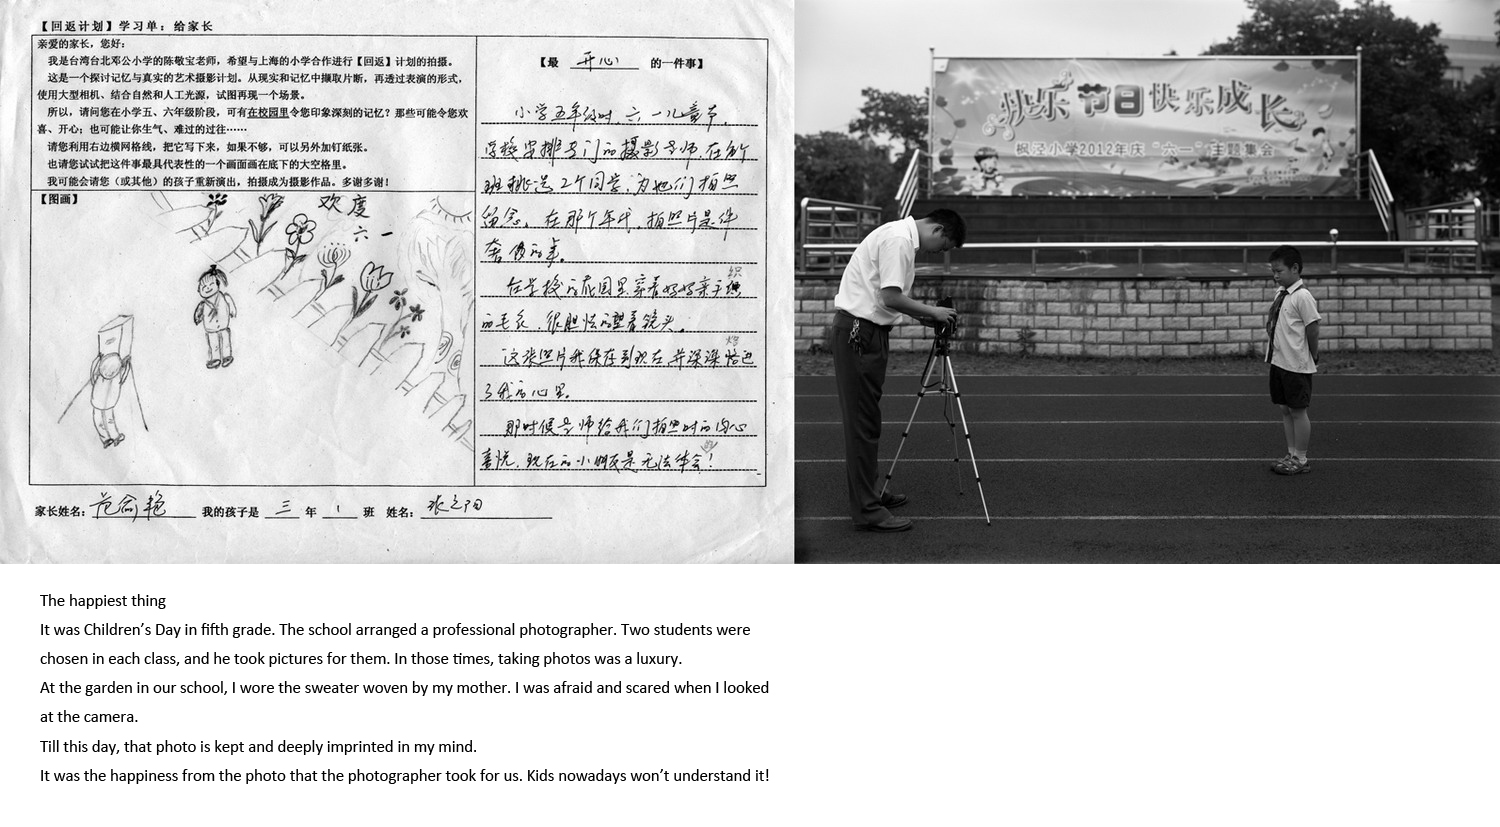 【回返计划】学习单：给家长
亲爱的家长，您好：
我是台湾台北邓公小学的陈敬宝老师，希望与上海的小学合作进行【回返】计划的拍摄。
这是一个探讨记忆与真实的艺术摄影计划。从现实和记忆中撷取片断，再透过表演的形式，
使用大型相机、结合自然和人工光源，试图再现一个场景。
所以，请问您在小学五、六年级阶段，可有在校园里令您印象深刻的记忆？那些可能令您欢
喜、开心；也可能让你生气、难过的过往……
请您利用右边横网格线，把它写下来，如果不够，可以另外加钉纸张。
也请您试试把这件事最具代表性的一个画面画在底下的大空格里。
我可能会请您（或其他）的孩子重新演出，拍摄成为摄影作品。多谢多谢！
【图画】
欢度
六一
【最 开心 的一件事】
小学五年级时，六一儿童节，
学校安排专门的摄影老师，在每个
班挑选2个同学，为他们拍照
留念。在那个年代，拍照片是件
奢侈的事。
在学校的花园里，穿着妈妈亲手织
的毛衣，很胆怯的望着镜头。
这张照片我保存到现在，并深深烙进
了我的心里。
那时候老师给我们拍照时的内心
喜悦，现在的小朋友是无法体会！
家长姓名： 范 艳 我的孩子是 三 年 1 班 姓名： 张之阳
快乐节日快乐成长
枫泾小学2012年庆“六一”主题集会
The happiest thing
It was Children’s Day in fifth grade. The school arranged a professional photographer. Two students were
chosen in each class, and he took pictures for them. In those times, taking photos was a luxury.
At the garden in our school, I wore the sweater woven by my mother. I was afraid and scared when I looked
at the camera.
Till this day, that photo is kept and deeply imprinted in my mind.
It was the happiness from the photo that the photographer took for us. Kids nowadays won’t understand it!